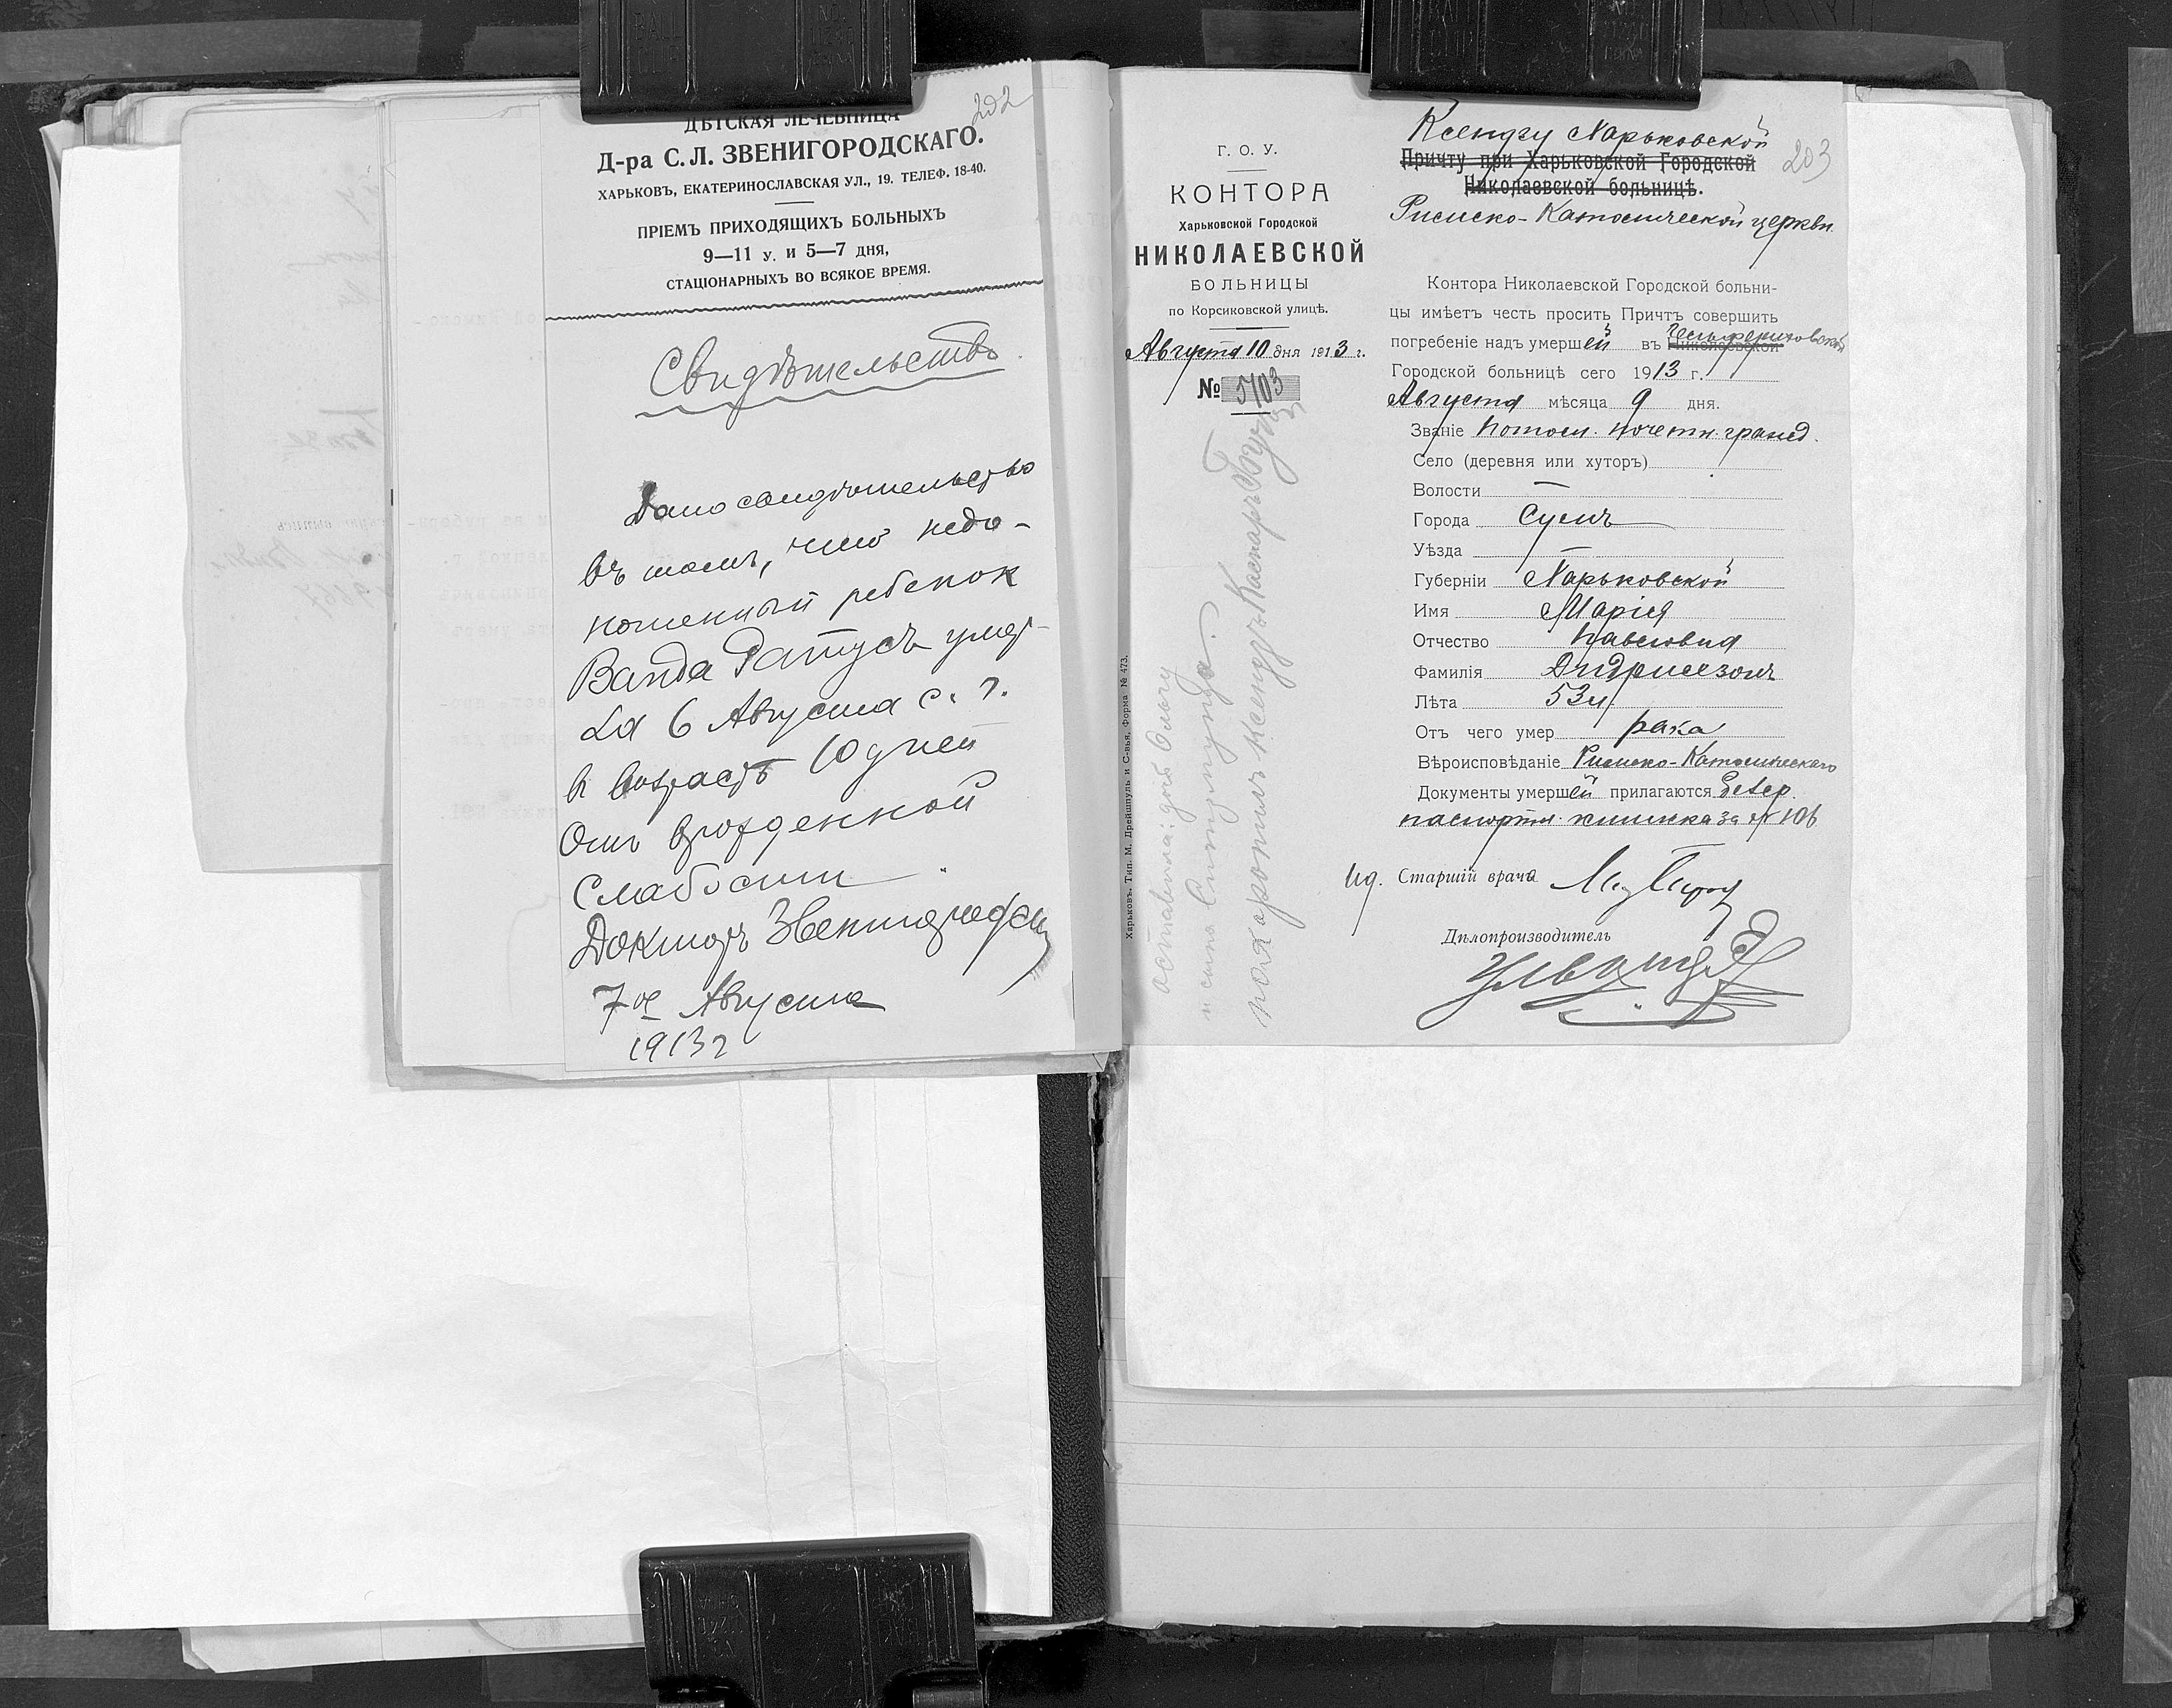 202
ДѢТСКАЯ ЛЕЧЕБНИЦА
Д-ра С. Л. ЗВЕНИГОРОДСКАГО.
ХАРЬКОВЪ, ЕКАТЕРИНОСЛАВСКАЯ УЛ., 19. ТЕЛЕФ. 18-40.
ПРІЕМЪ ПРИХОДЯЩИХЪ БОЛЬНЫХЪ
9—11 у. и 5—7 дня,
СТАЦІОНАРНЫХЪ ВО ВСЯКОЕ ВРЕМЯ.
Свидѣтельство
Дано свидѣтельство
въ томъ, что недо-
ношенный ребенок
Ванда Ратусъ умер-
ла 6 Августа с. г.
в возрастѣ 10 дней
От врожденной
Слабости
Докторъ Звенигородскій
7ое Августа
1913 г
Г. О. У.
КОНТОРА
Харьковской Городской
НИКОЛАЕВСКОЙ
БОЛЬНИЦЫ
по Корсиковской улицѣ.
Августа 10 дня 1913 г.
№ 5103
оставила: дочь Ольгу
и сына Сигизмунда.
похоронилъ ксендзъ Каспаръ
Харьковъ. Тип. М. Дрейшпуль и С-вья. Форма № 473.
Ксендзу Харьковской
203
Причту при Харьковской Городской
Николаевской больницѣ.
Римско-Католической церкви.
Контора Николаевской Городской больни-
цы имѣетъ честь просить Причтъ совершить
погребеніе надъ умершей въ Николаевской Гельфериховской
Городской больницѣ сего 1913 г.
Августа мѣсяца 9 дня.
Званіе потом. почетн. гражд.
Село (деревня или хуторъ)
Волости —
Города Сумъ
Уѣзда —
Губерніи Харьковской
Имя Марія
Отчество Павловна
Фамилія
Лѣта 53 л.
Отъ чего умер рака
Вѣроисповѣданіе Римско-Католическаго
Документы умершей прилагаются безср.
паспортн. книжка за № 106
Ид. Старшій врача
Дѣлопроизводитель